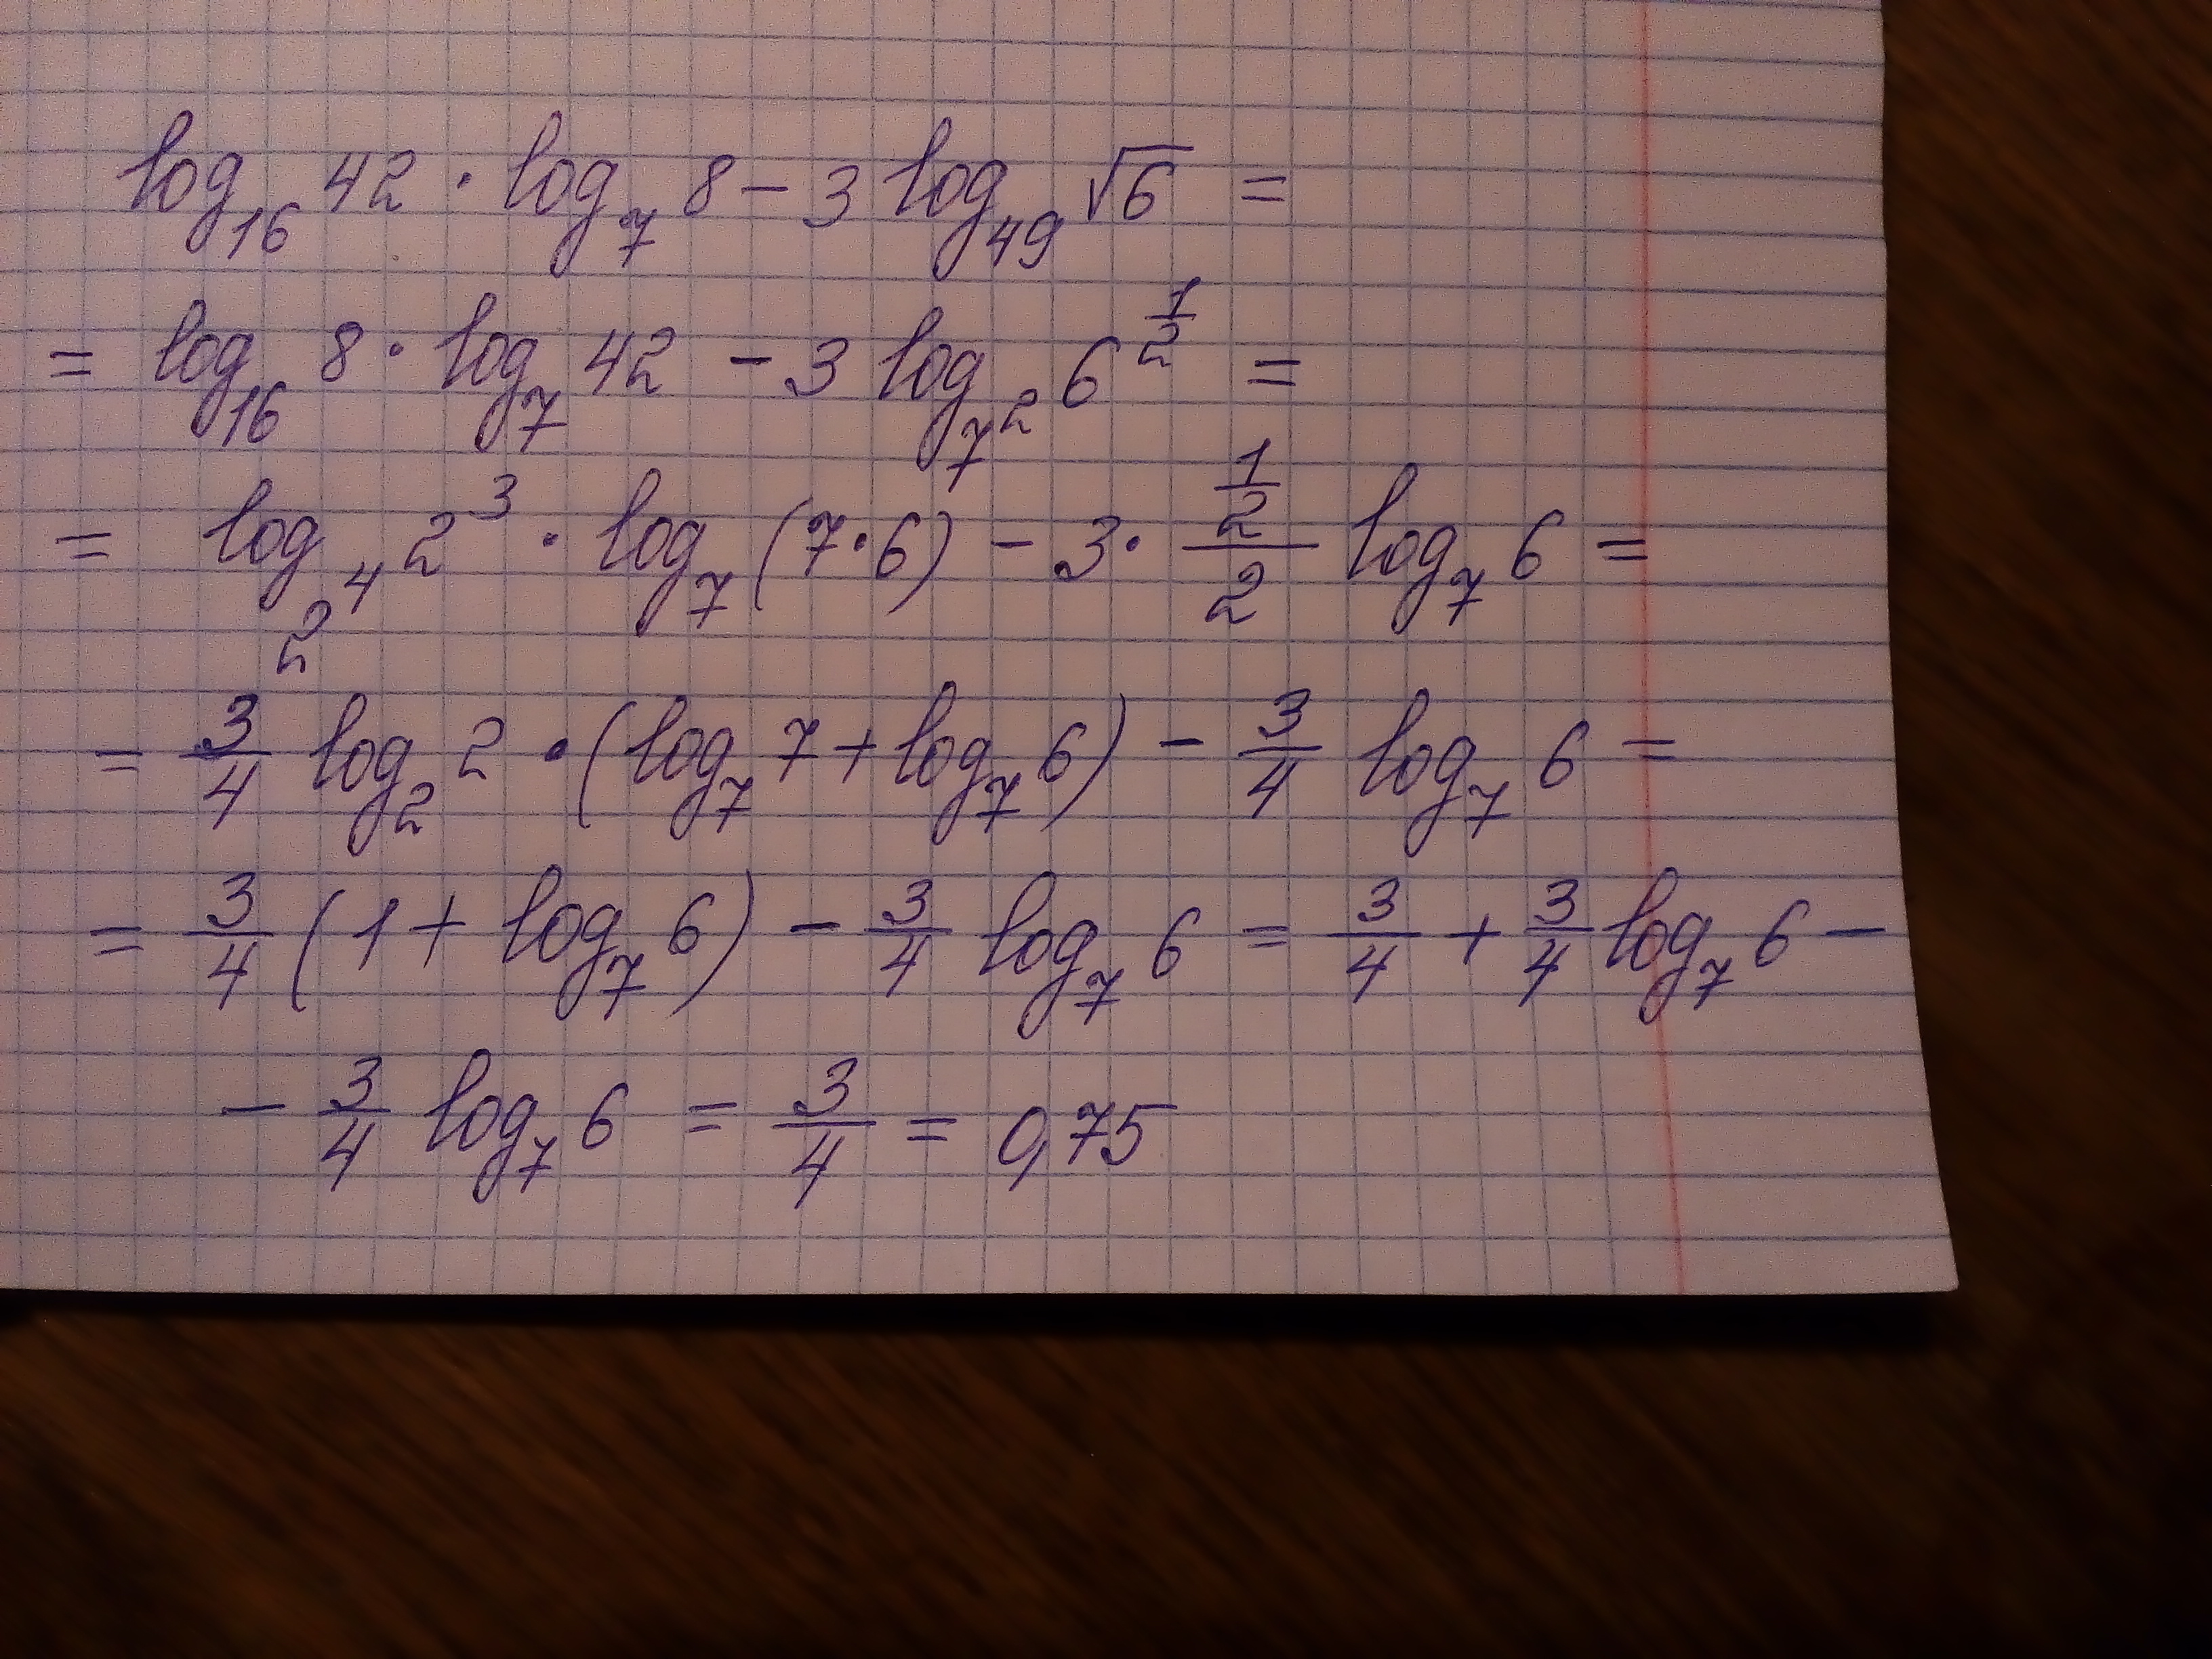 log₁₆ 42 · log₇ 8 – 3 log₄₉ √6 =
= log₁₆ 8 · log₇ 42 – 3 log_{7²} 6^{1/2} =
= log_{2⁴} 2³ · log₇ (7·6) – 3 · \frac{\frac{1}{2}}{2} log₇ 6 =
= \frac{3}{4} log₂ 2 · (log₇ 7 + log₇ 6) – \frac{3}{4} log₇ 6 =
= \frac{3}{4} (1 + log₇ 6) – \frac{3}{4} log₇ 6 = \frac{3}{4} + \frac{3}{4} log₇ 6 –
– \frac{3}{4} log₇ 6 = \frac{3}{4} = 0,75